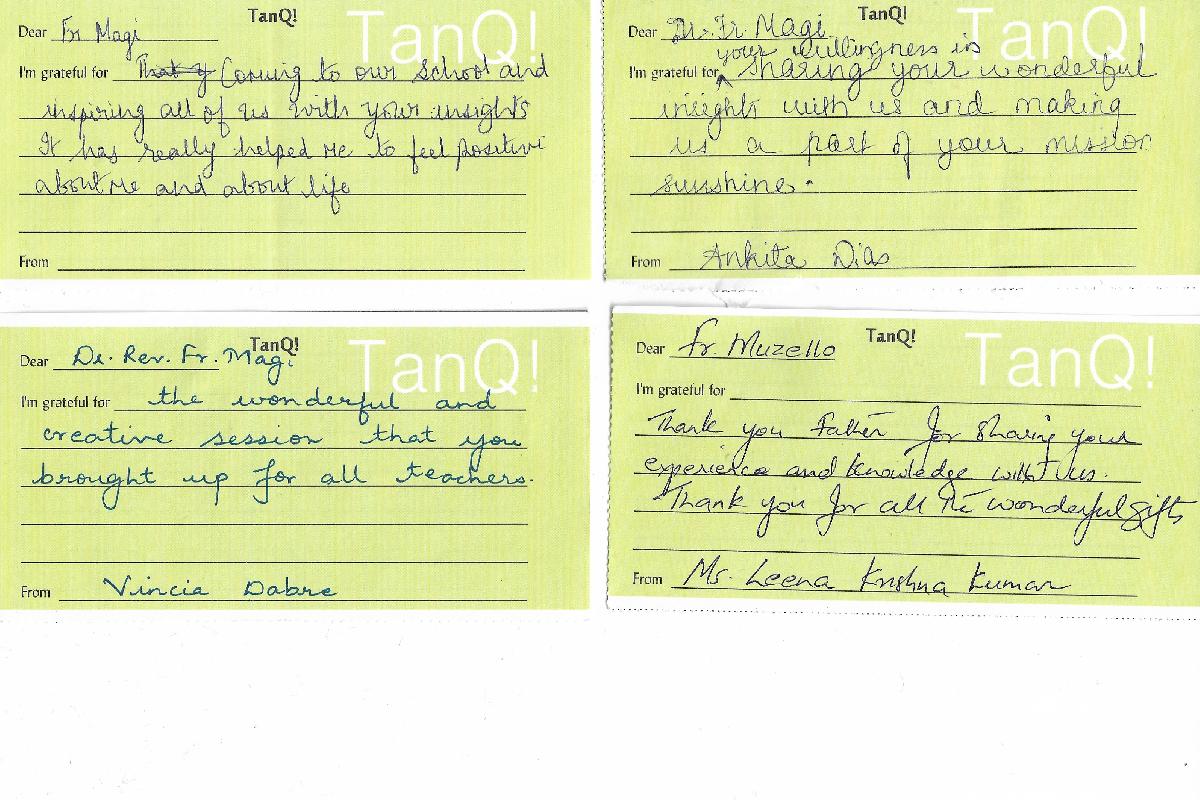 TanQ!
TanQ!
Dear Fr Magi
I'm grateful for That y Coming to our School and
inspiring all of us with your insights
It has really helped me to feel positive
about Me and about life
From
TanQ!
TanQ!
Dear Dr. Fr. Magi
your willingness in
I'm grateful for sharing your wonderful
insights with us and making
us a part of your mission
sunshine.
From Ankita Dias
TanQ!
TanQ!
Dear Dr. Rev. Fr. Magi
I'm grateful for the wonderful and
creative session that you
brought up for all teachers.
From Vincia Dabre
TanQ!
TanQ!
Dear Fr. Muzello
I'm grateful for
Thank you Father for sharing your
experience and knowledge with us.
Thank you for all the wonderful gifts
From Mr. Leena Krishna Kumar